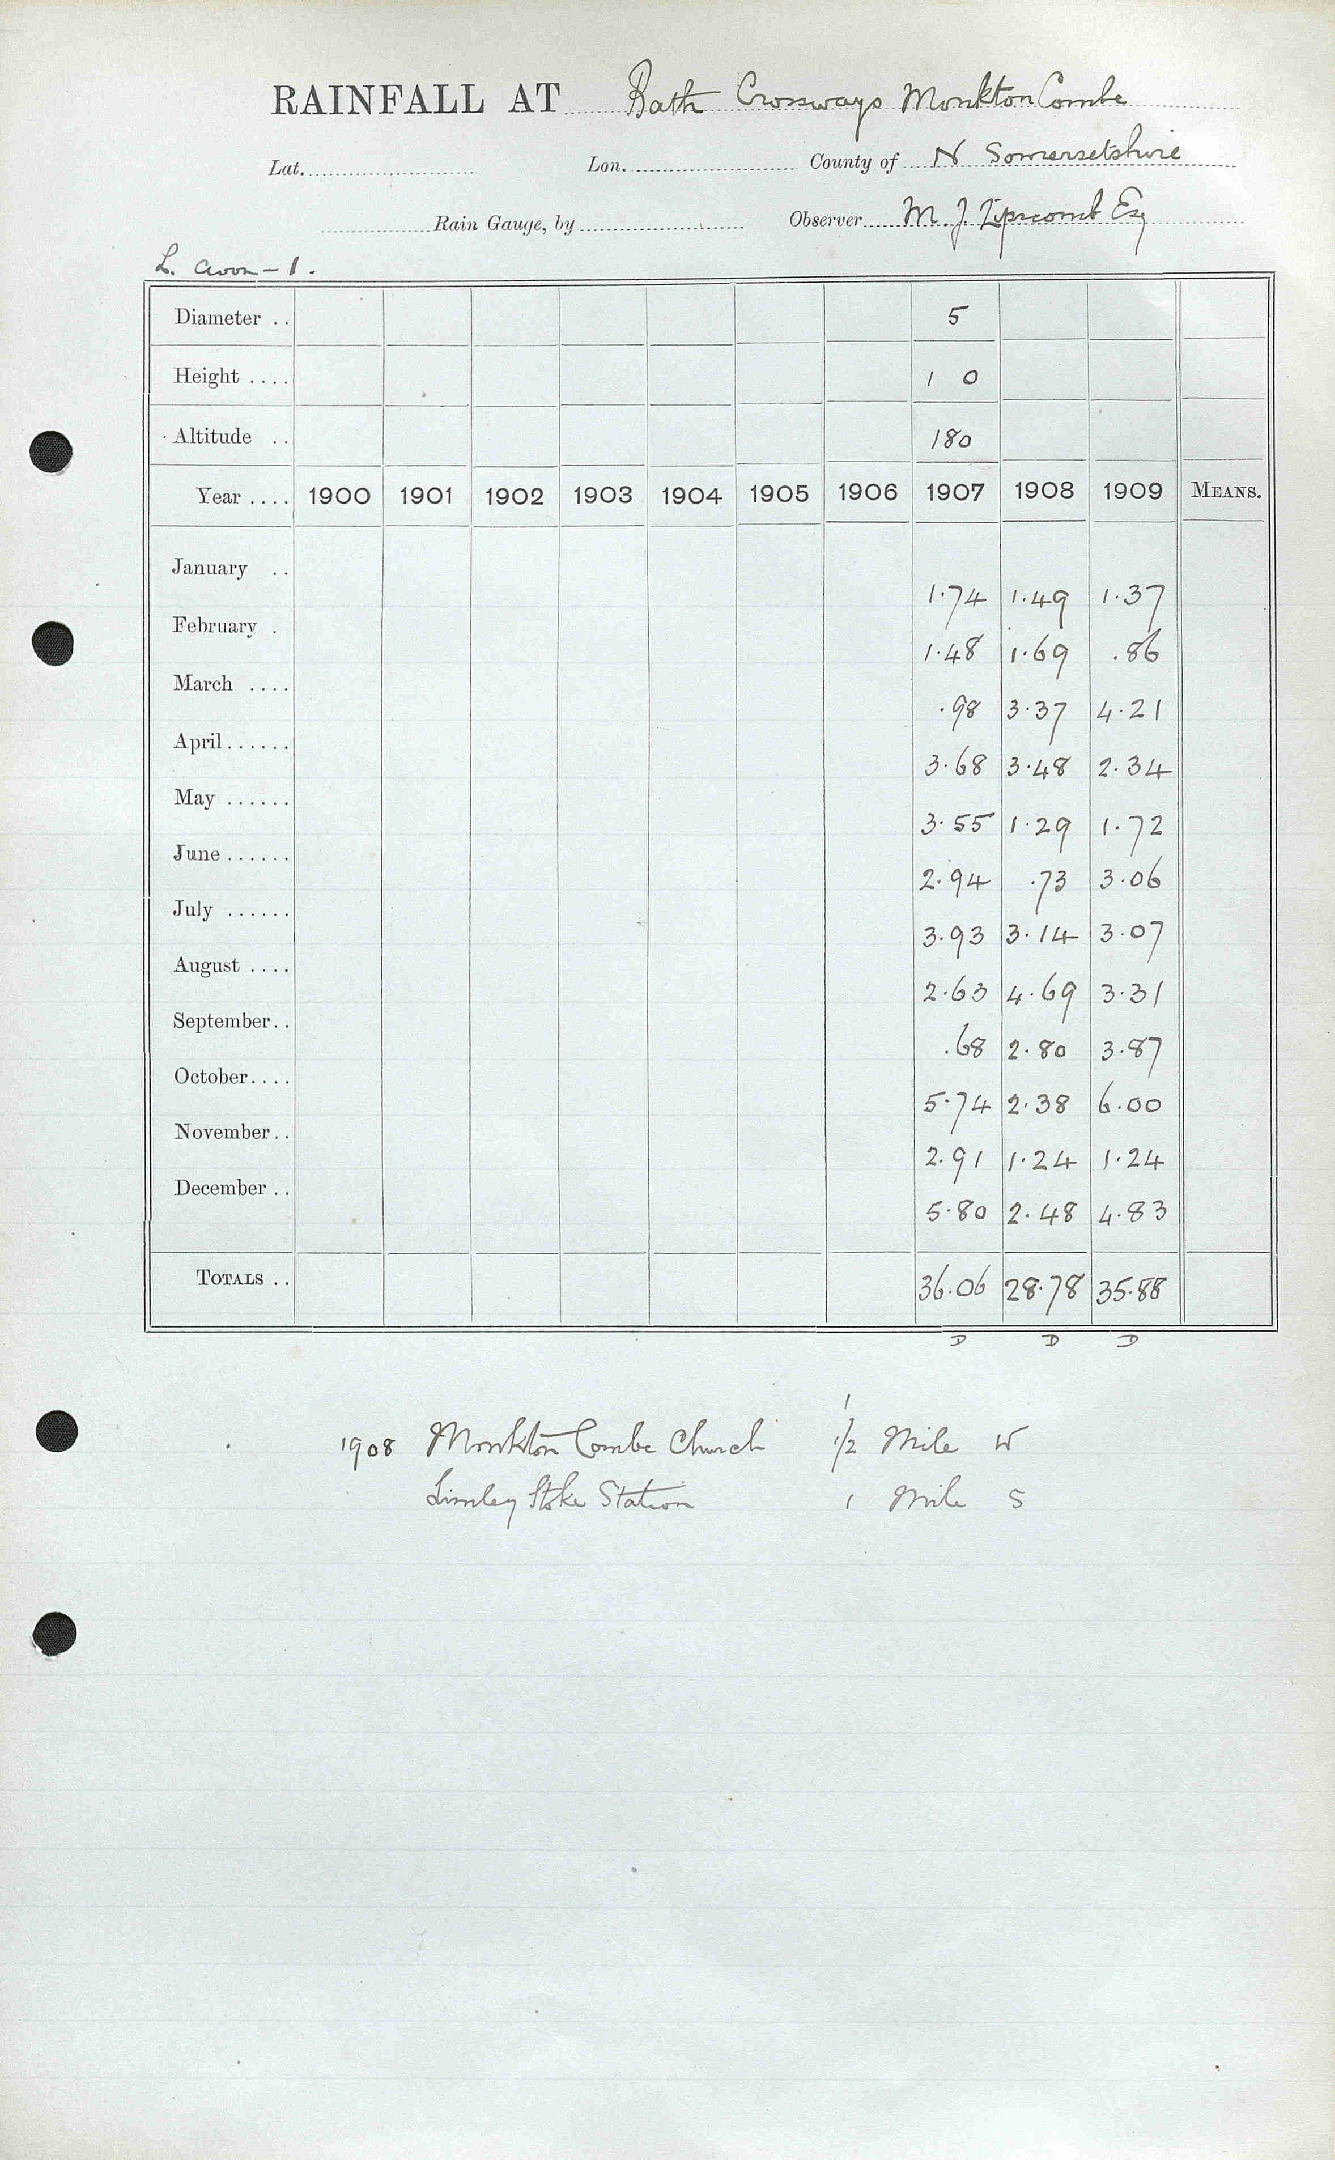 RAINFALL AT Bath Crossways Monkton Combe
Lat. Lon. County of N Somersetshire
Rain Gauge, by Observer M. J. Lipscomb Esq
L. Avon - 1.
Diameter .. 5
Height .... 1 0
Altitude .. 180
Year .... 1900 1901 1902 1903 1904 1905 1906 1907 1908 1909 MEANS.
January .. 1.74 1.49 1.37
February . 1.48 1.69 .86
March .... .98 3.37 4.21
April...... 3.68 3.48 2.34
May ...... 3.55 1.29 1.72
June...... 2.94 .73 3.06
July ...... 3.93 3.14 3.07
August .... 2.63 4.69 3.31
September.. .68 2.80 3.87
October.... 5.74 2.38 6.00
November.. 2.91 1.24 1.24
December .. 5.80 2.48 4.83
TOTALS .. 36.06 28.78 35.88
D D D
1908 Monkton Combe Church 1/2 Mile W
Limley Stoke Station 1 Mile S